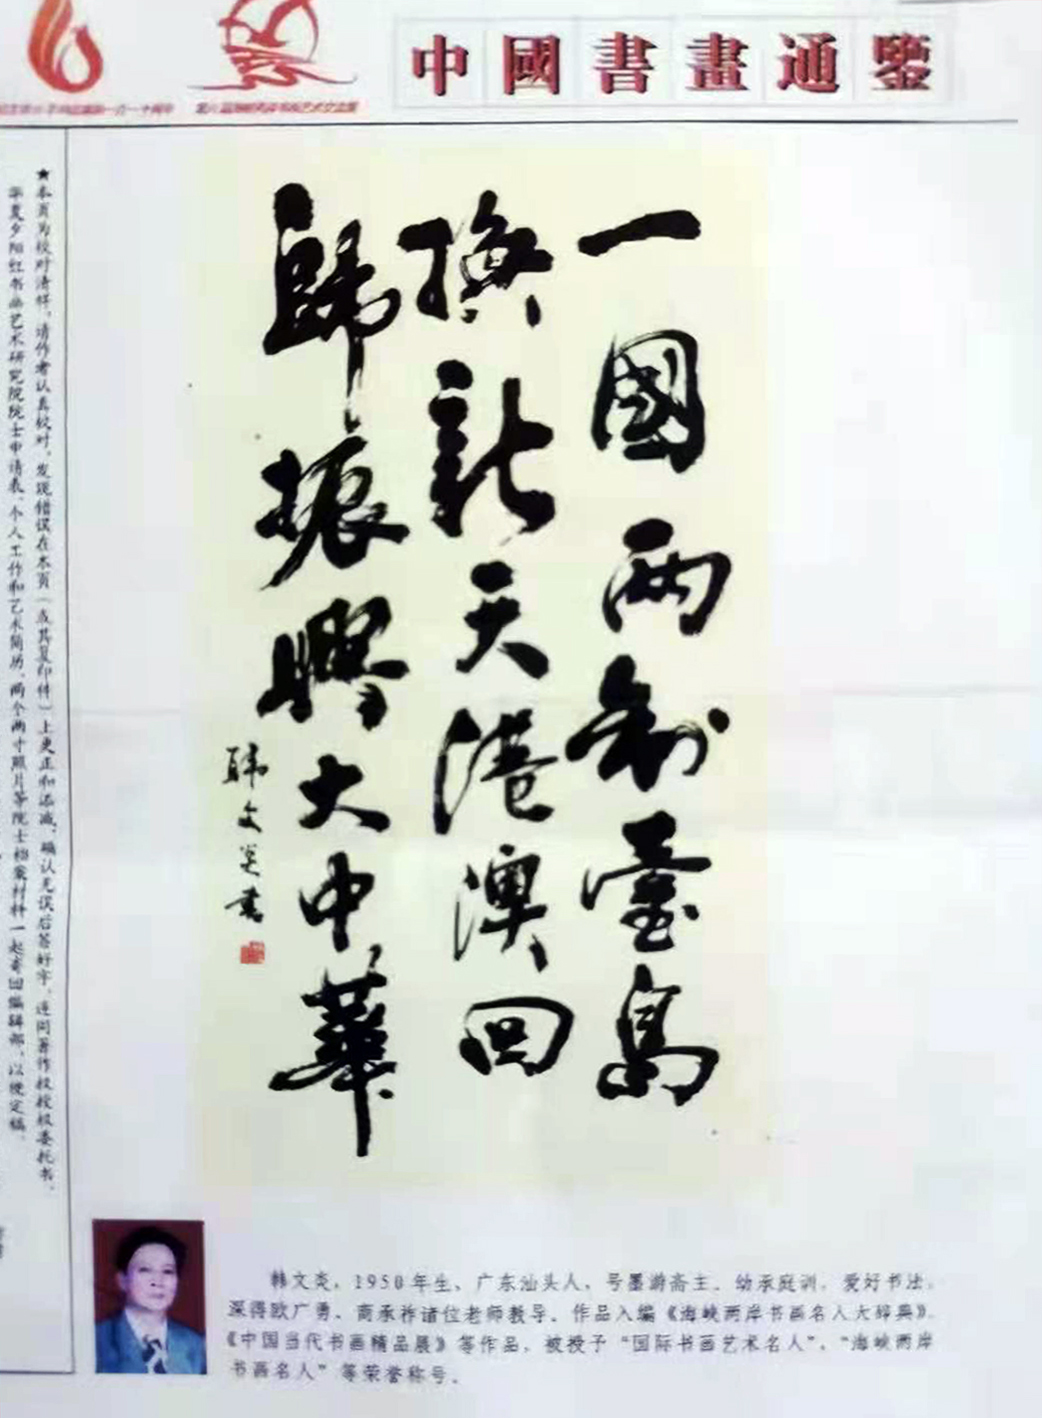 中國書畫通鑒
一國兩制臺島
換新天港澳回
歸振興大中華
韩文炎書
★本页为校对清样，请作者认真校对，发现错误在本页（或其复印件）上更正和添减，确认无误后签好字，连同著作权授权委托书、
华夏夕阳红书画艺术研究院院士申请表、个人工作和艺术简历、两个两寸照片等院士档案材料一起寄回编辑部，以便定稿。
韩文炎，1950年生，广东汕头人，号墨游斋主，幼承庭训，爱好书法，
深得欧广勇、商承祚诸位老师教导。作品入编《海峡两岸书画名人大辞典》、
《中国当代书画精品展》等作品，被授予“国际书画艺术名人”，“海峡两岸
书画名人”等荣誉称号。